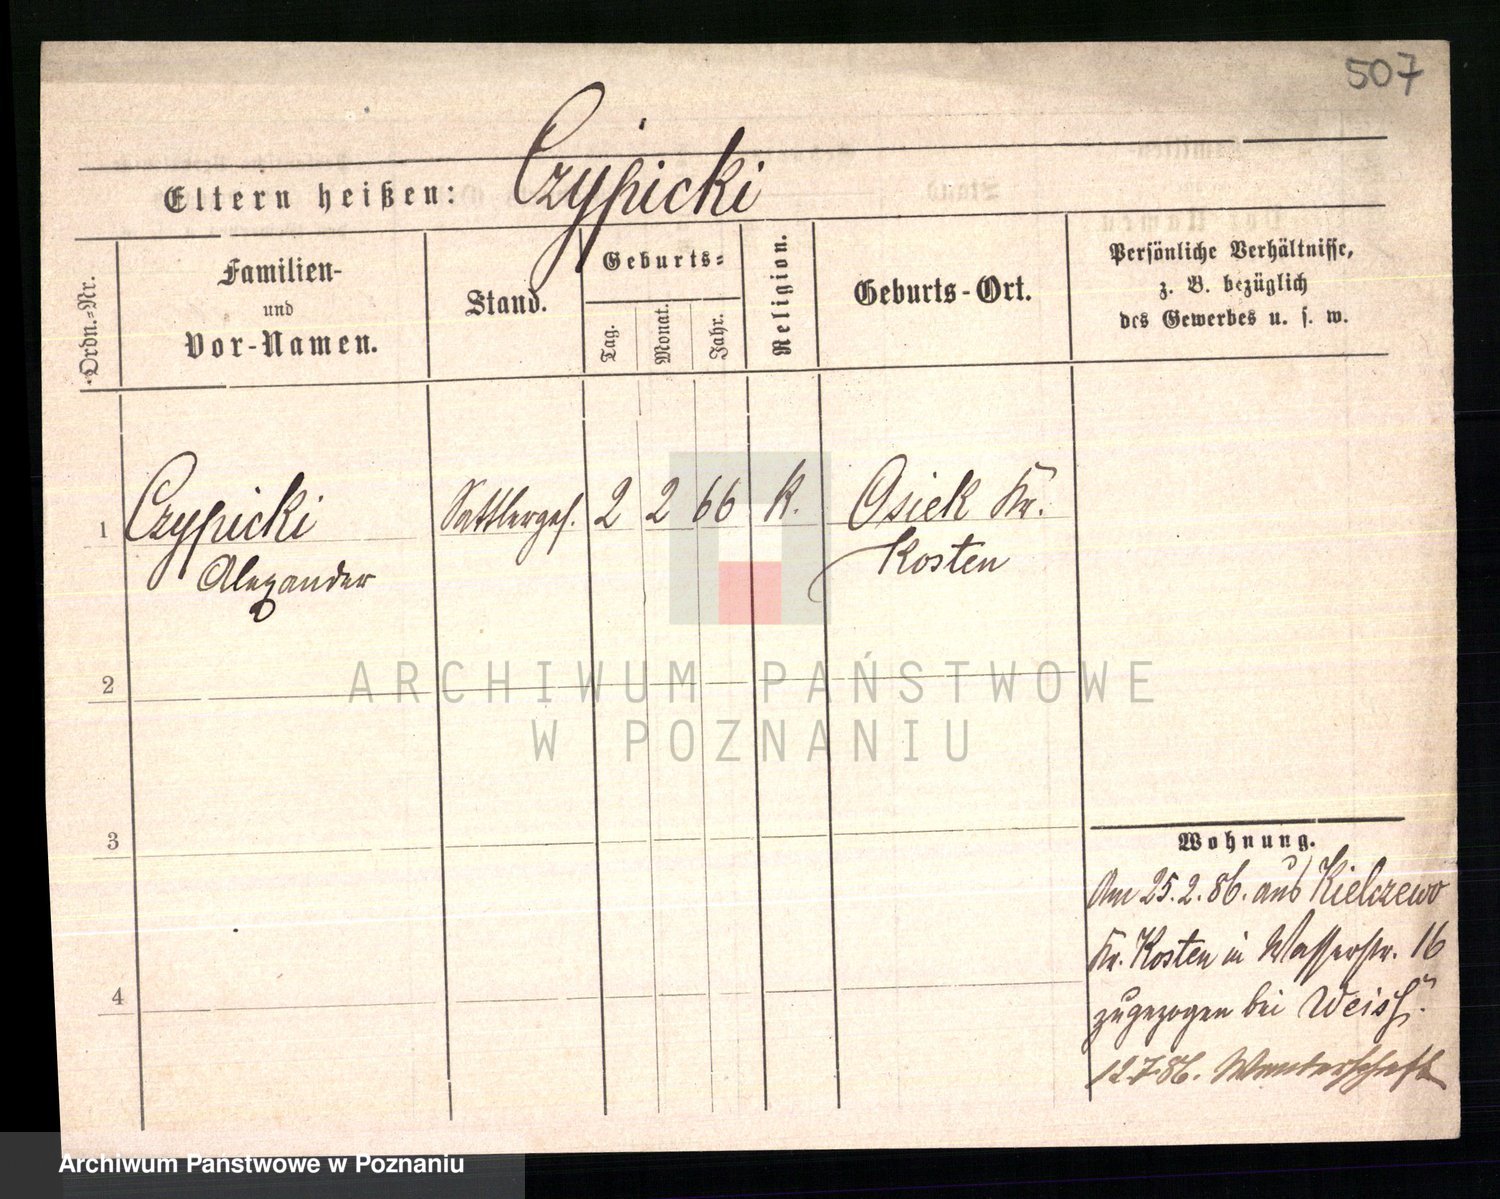 507
Eltern heißen: Czypicki
Ordn.-Nr.
Familien-
und
Vor-Namen.
Stand.
Geburts-
Tag.
Monat.
Jahr.
Religion.
Geburts-Ort.
Persönliche Verhältnisse,
z. B. bezüglich
des Gewerbes u. s. w.
1 Czypicki Sattlerges. 2 2 66 K. Osiek Kr.
Alexander Kosten
2
ARCHIWUM PAŃSTWOWE
W POZNANIU
3
Wohnung.
Am 25.2.86. aus Kielczewo
Kr. Kosten in Wasserstr. 16
4
zugezogen bei Weiss.
12.7.86. Wanderschaft
Archiwum Państwowe w Poznaniu